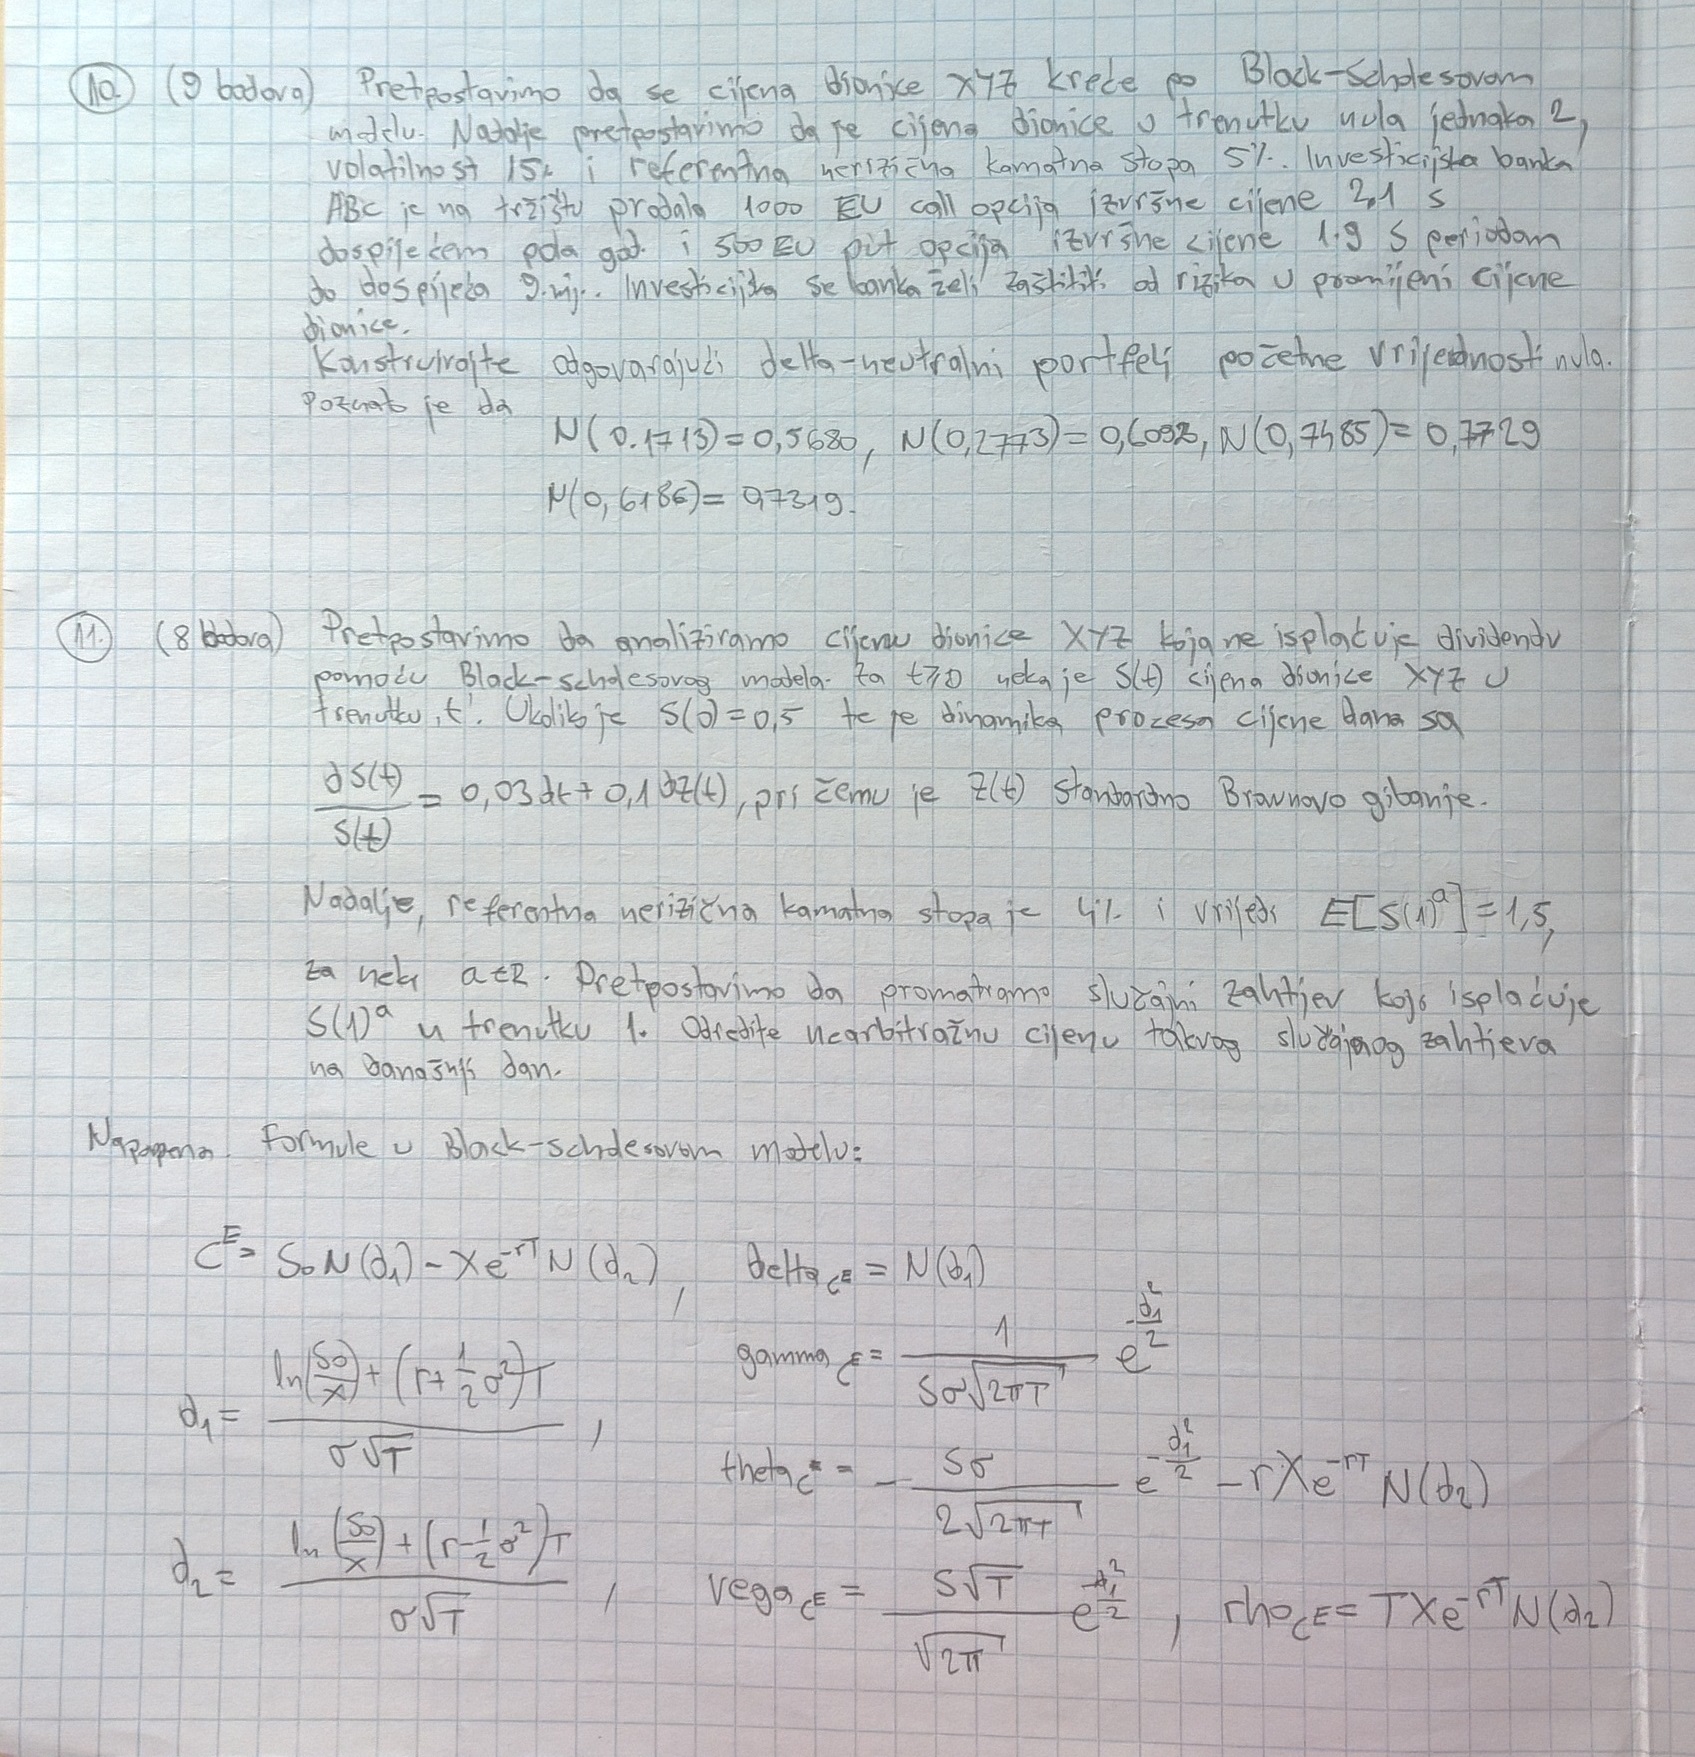 10. (9 bodova) Pretpostavimo da se cijena dionice XYZ kreće po Black-Scholesovom
modelu. Nadalje pretpostavimo da je cijena dionice u trenutku nula jednaka 2,
volatilnost 15% i referentna nerizična kamatna stopa 5%. Investicijska banka
ABC je na tržištu prodala 1000 EU call opcija izvršne cijene 2,1 s
dospijećem pola god. i 500 EU put opcija izvršne cijene 1.9 s periodom
do dospijeća 9.mj.. Investicijska se banka želi zaštititi od rizika u promijeni cijene
dionice.
Konstruirajte odgovarajući delta-neutralni portfelj početne vrijednosti nula.
Poznato je da
N(0.1713)=0,5680, N(0,2773)=0,6092, N(0,7485)=0,7729
N(0,6186)=0,7319.
11. (8 bodova) Pretpostavimo da analiziramo cijenu dionice XYZ koja ne isplaćuje dividendu
pomoću Black-Scholesovog modela. Za t≥0 neka je S(t) cijena dionice XYZ u
trenutku ,t'. Ukoliko je S(0)=0,5 te je dinamika procesa cijene dana sa
dS(t)/S(t) = 0,03dt+0,1dZ(t), pri čemu je Z(t) standardno Brownovo gibanje.
Nadalje, referentna nerizična kamatna stopa je 4% i vrijedi E[S(1)^a]=1,5,
za neki a∈R. Pretpostavimo da promatramo slučajni zahtjev koji isplaćuje
S(1)^a u trenutku 1. Odredite nearbitražnu cijenu takvog slučajnog zahtjeva
na današnji dan.
Napomena. Formule u Black-Scholesovom modelu:
C^E = S₀N(d₁)-Xe^{-rT}N(d₂), delta_{C^E} = N(d₁)
d₁ = (ln(S₀/X)+(r+1/2σ²)T)/(σ√T), gamma_{C^E} = 1/(Sσ√(2πT)) e^{-d₁²/2}
theta_{C^E} = - Sσ/(2√(2πT)) e^{-d₁²/2} - rXe^{-rT}N(d₂)
d₂ = (ln(S₀/X)+(r-1/2σ²)T)/(σ√T), vega_{C^E} = S√T/√(2π) e^{-d₁²/2}, rho_{C^E} = TXe^{-rT}N(d₂)